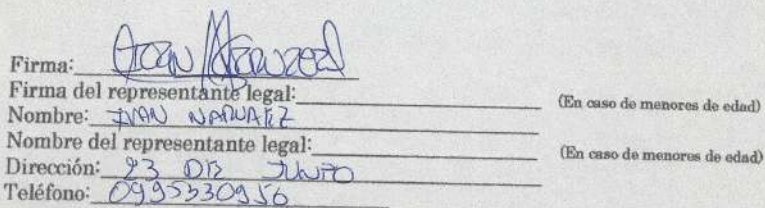 Firma: Ivan Narvaez
Firma del representante legal: (En caso de menores de edad)
Nombre: IVAN NARVAEZ
Nombre del representante legal: (En caso de menores de edad)
Dirección: 23 DE JUNIO
Teléfono: 0995330956